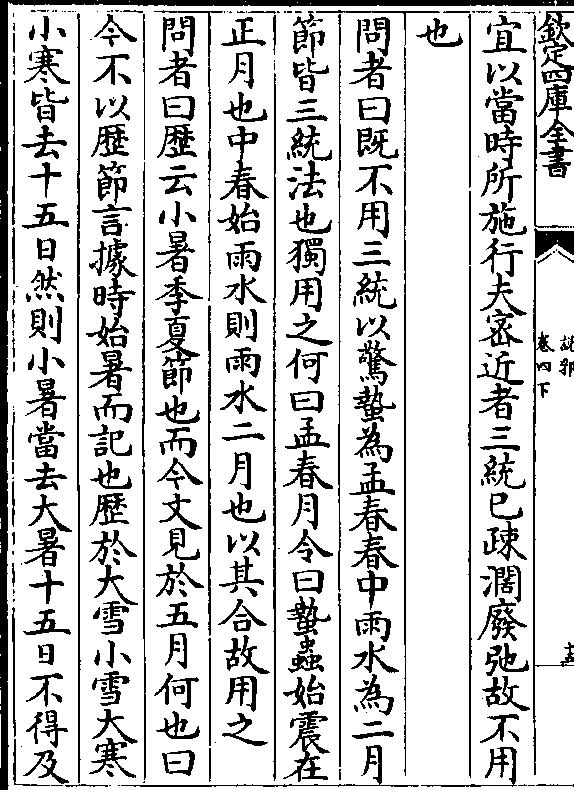 欽定四庫全書
說郛
卷四下
十五
宜以當時所施行夫宻近者三統已疎濶廢弛故不用
也
問者曰既不用三統以驚蟄為孟春春中雨水為二月
節皆三統法也獨用之何曰孟春月令曰蟄蟲始震在
正月也中春始雨水則雨水二月也以其合故用之
問者曰歴云小暑季夏節也而今文見於五月何也曰
今不以歴節言據時始暑而記也歴於大雪小雪大寒
小寒皆去十五日然則小暑當去大暑十五日不得及